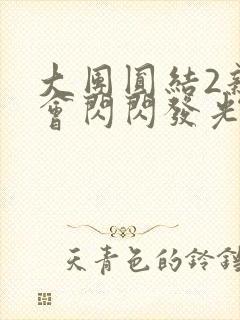 大團圓結2
會閃閃發光
天青色的鈴鐺